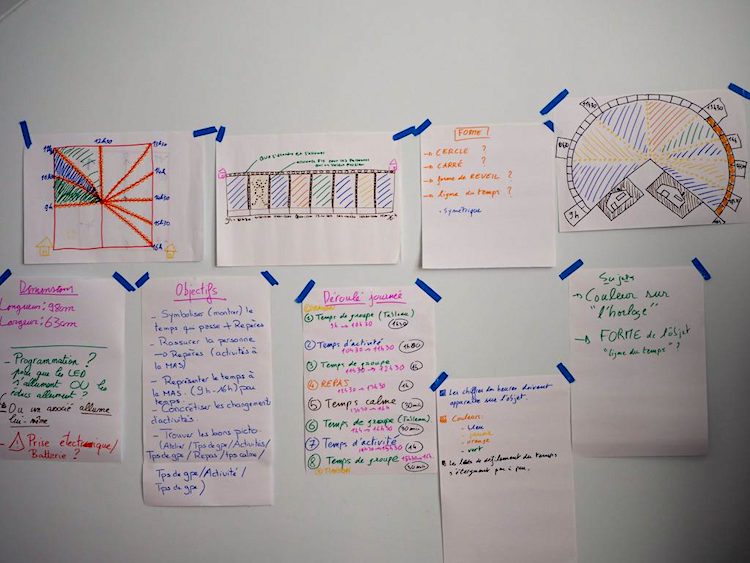 12H30
10H30
9h
13H30
14H
15H30
16h
FORME ?
→ CERCLE ?
→ CARRÉ ?
→ forme de REVEIL ?
→ ligne du temps ?
- symétrique
11H30
13H30
9h
Dimensions
Longueur: 98cm
Largeur: 63cm
- Programmation ?
pour que les LED
s'allument OU les
icônes allument ?
Ou un avocié allume
lui-même
- Prise électrique/
Batterie ?
Objectifs
- Symboliser (montrer) le
temps qui passe → Repères
- Rassurer la personne
→ Repères (activités à
la MAS)
- Représenter le temps à
la MAS. (9h - 16h) pau
temps.
- Concrétiser les changements
d'activités.
- Trouver les bons picto
(Atelier / Tps de gpe / Activités /
Tps de gpe / Repas / tps calme /
Tps de gpe / Activité /
Tps de gpe)
Déroulé journée
① Temps de groupe (Tableau)
9h → 10h30
1h30
② Temps d'activité
10h30 → 11h30
③ Temps de groupe
11h30 → 12h30
1h
④ REPAS
12h30 → 13h30
1h
⑤ Temps calme
13h30 → 14h
30min
⑥ Temps de groupe (Tableau)
30min
⑦ Temps d'activité
14h30 → 15h30
1h
⑧ Temps de groupe
15h30 → 16h
30min
MAISON
Les chiffres des heures doivent
apparaître sur l'objet.
Couleurs:
- bleu
- jaune
- orange
- vert
s'éteignent peu à peu.
Sujets
→ Couleur sur
"l'horloge"
→ FORME de l'objet
"ligne du temps" ?